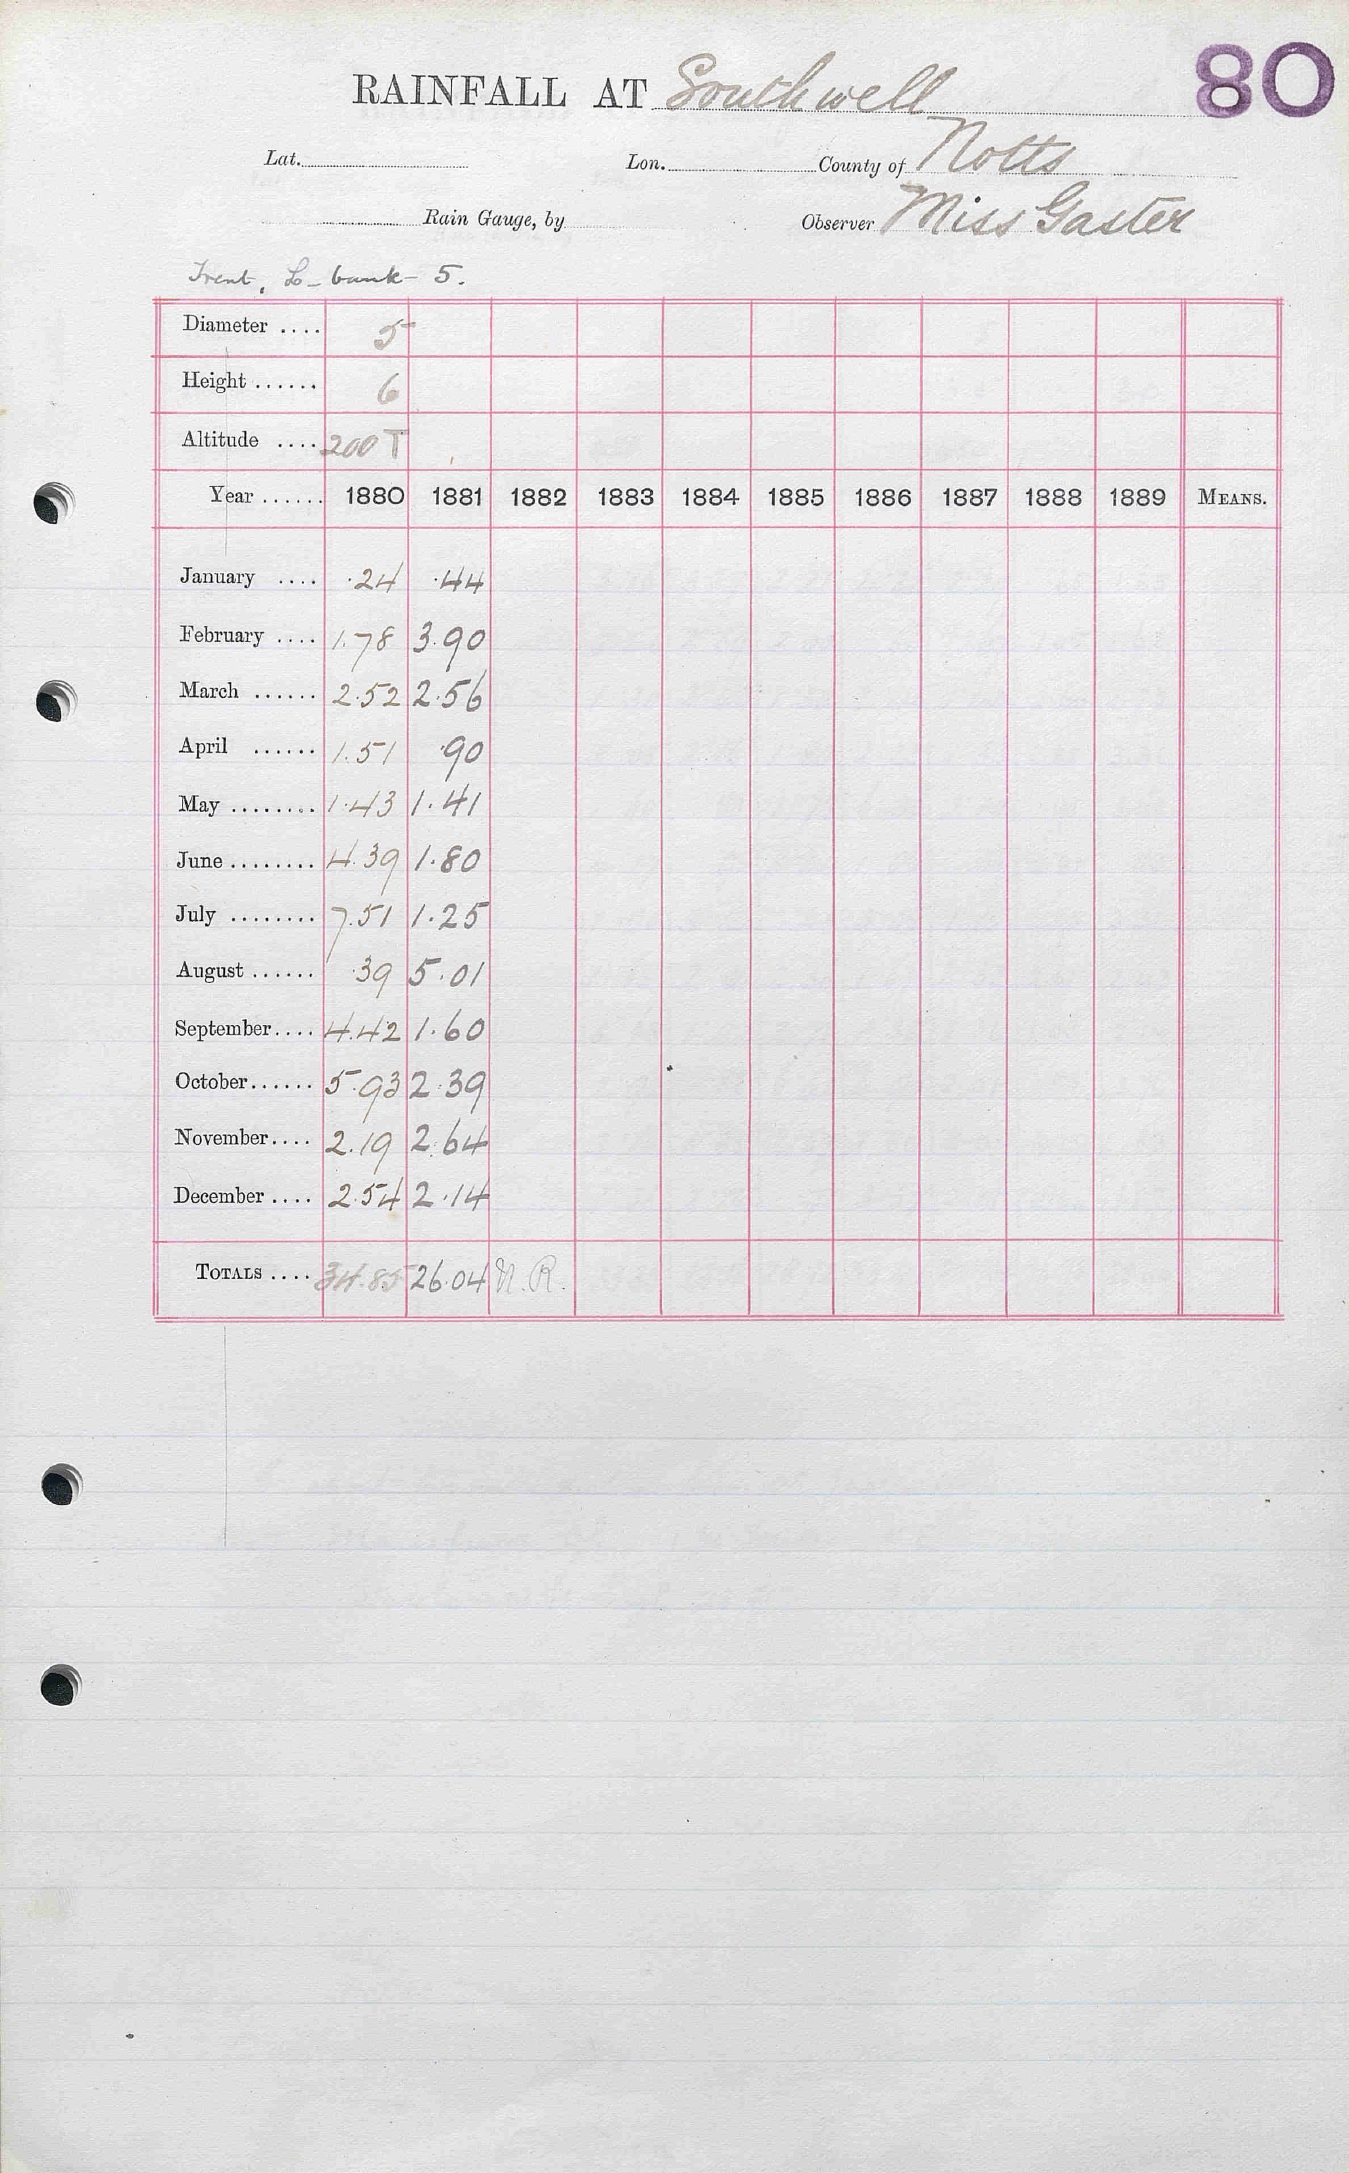 80
RAINFALL AT Southwell
Lat. Lon. County of Notts
Rain Gauge, by Observer Miss Gaster
Trent, L- bank- 5.
Diameter .... 5
Height ...... 6
Altitude .... 200 T
Year ...... 1880 1881 1882 1883 1884 1885 1886 1887 1888 1889 MEANS.
January .... .24 .44
February .... 1.78 3.90
March ...... 2.52 2.56
April ...... 1.51 .90
May ........ 1.43 1.41
June ........ 4.39 1.80
July ........ 7.51 1.25
August ...... .39 5.01
September.... 4.42 1.60
October...... 5.93 2.39
November.... 2.19 2.64
December .... 2.54 2.14
TOTALS .... 34.85 26.04 N.R.